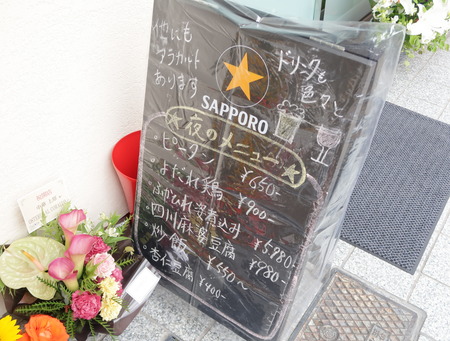 他にも
アラカルト
あります
ドリンクも
色々と
SAPPORO
★夜のメニュー★
。ピータン ¥650-
。よだれ鶏 ¥900-
。ふかひれ姿煮込み ¥5,980-
。四川麻婆豆腐 ¥980-
。炒飯 ¥550〜
。杏仁豆腐 ¥400-